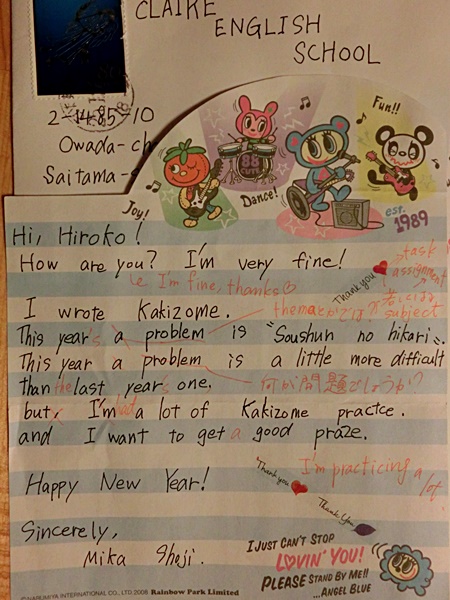 CLAIRE
ENGLISH
SCHOOL
2-1485-10
Owada-ch
Saitama-s
Fun!!
Joy!
Dance!
88
CUTE
est.
1989
Hi, Hiroko!
How are you? I'm very fine!
I'm fine, thanks♡
Thank you
task
assignment
subject
I wrote Kakizome.
This year's a problem is "Soushun no hikari".
This year a problem is a little more difficult
than the last year's one.
何が問題でしょうか?
but, I'm a lot of Kakizome practce.
and I want to get a good praze.
I'm practicing a
lot.
Happy New Year!
Thank you
Thank you
Sincerely,
Mika Shoji.
I JUST CAN'T STOP
LOVIN' YOU!
PLEASE STAND BY ME!!
...ANGEL BLUE
©NARUMIYA INTERNATIONAL CO., LTD 2008 Rainbow Park Limited